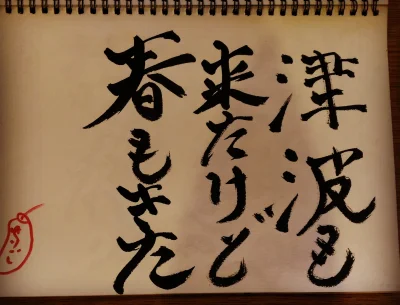 津波も
来たけど
春もきた